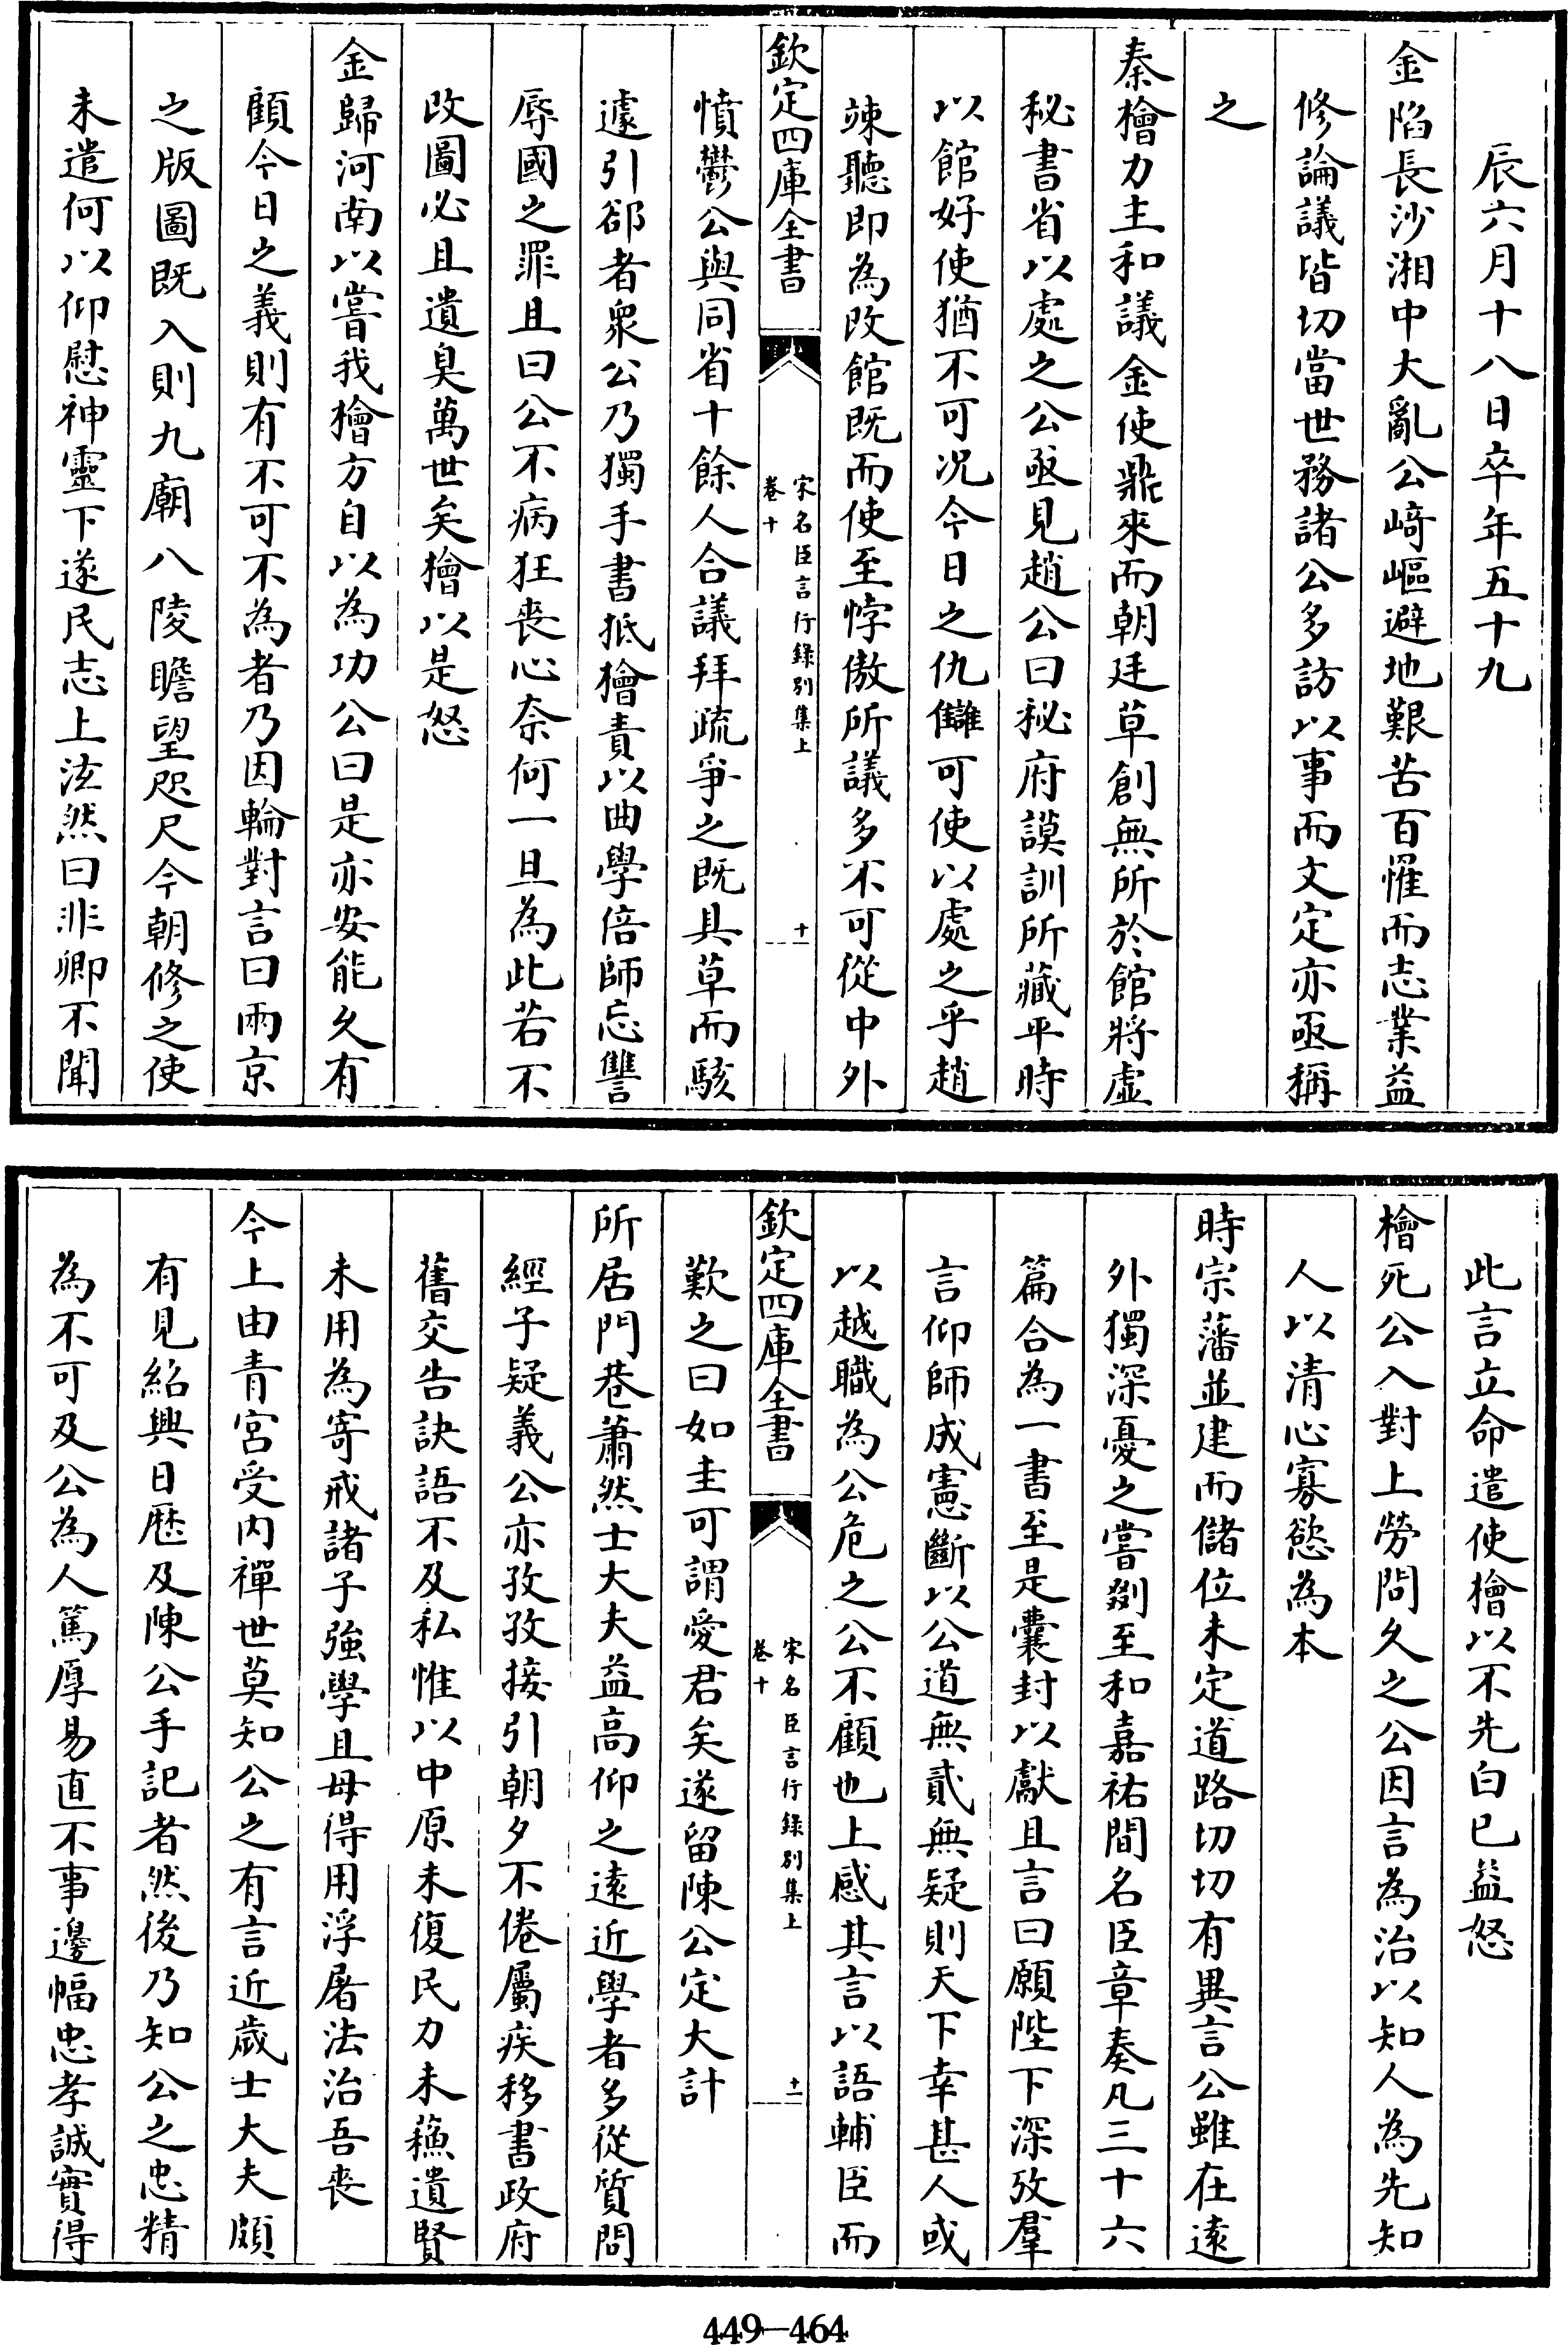 辰六月十八日卒年五十九
金陷長沙湘中大亂公﨑嶇避地艱苦百罹而志業益
修論議皆切當世務諸公多訪以事而文定亦亟稱
之
秦檜力主和議金使鼎來而朝廷草創無所於館將虛
秘書省以處之公亟見趙公曰秘府謨訓所藏平時
以館好使猶不可况今日之仇讎可使以處之乎趙
竦聽即為改館既而使至悖傲所議多不可從中外
欽定四庫全書
宋名臣言行錄別集上
卷十
十
憤鬱公與同省十餘人合議拜疏爭之既具草而駭
遽引郤者衆公乃獨手書抵檜責以曲學倍師忘讐
辱國之罪且曰公不病狂喪心奈何一旦為此若不
改圖必且遺臭萬世矣檜以是怒
金歸河南以嘗我檜方自以為功公曰是亦安能久有
顧今日之義則有不可不為者乃因輪對言曰兩京
之版圖既入則九廟八陵瞻望咫尺今朝修之使
未遣何以仰慰神靈下遂民志上泫然曰非卿不聞
此言立命遣使檜以不先白已益怒
檜死公入對上勞問久之公因言為治以知人為先知
人以清心寡慾為本
時宗藩並建而儲位未定道路切切有異言公雖在遠
外獨深憂之嘗剟至和嘉祐間名臣章奏凡三十六
篇合為一書至是囊封以獻且言曰願陛下深攷羣
言仰師成憲斷以公道無貳無疑則天下幸甚人或
以越職為公危之公不顧也上感其言以語輔臣而
欽定四庫全書
宋名臣言行錄別集上
卷十
十一
歎之曰如圭可謂愛君矣遂留陳公定大計
所居門巷蕭然士大夫益高仰之遠近學者多從質問
經子疑義公亦孜孜接引朝夕不倦屬疾移書政府
舊交告訣語不及私惟以中原未復民力未蘓遺賢
未用為寄戒諸子強學且毋得用浮屠法治吾喪
今上由青宮受內禪世莫知公之有言近歲士大夫頗
有見紹興日厯及陳公手記者然後乃知公之忠精
為不可及公為人篤厚易直不事邊幅忠孝誠實得
449—464